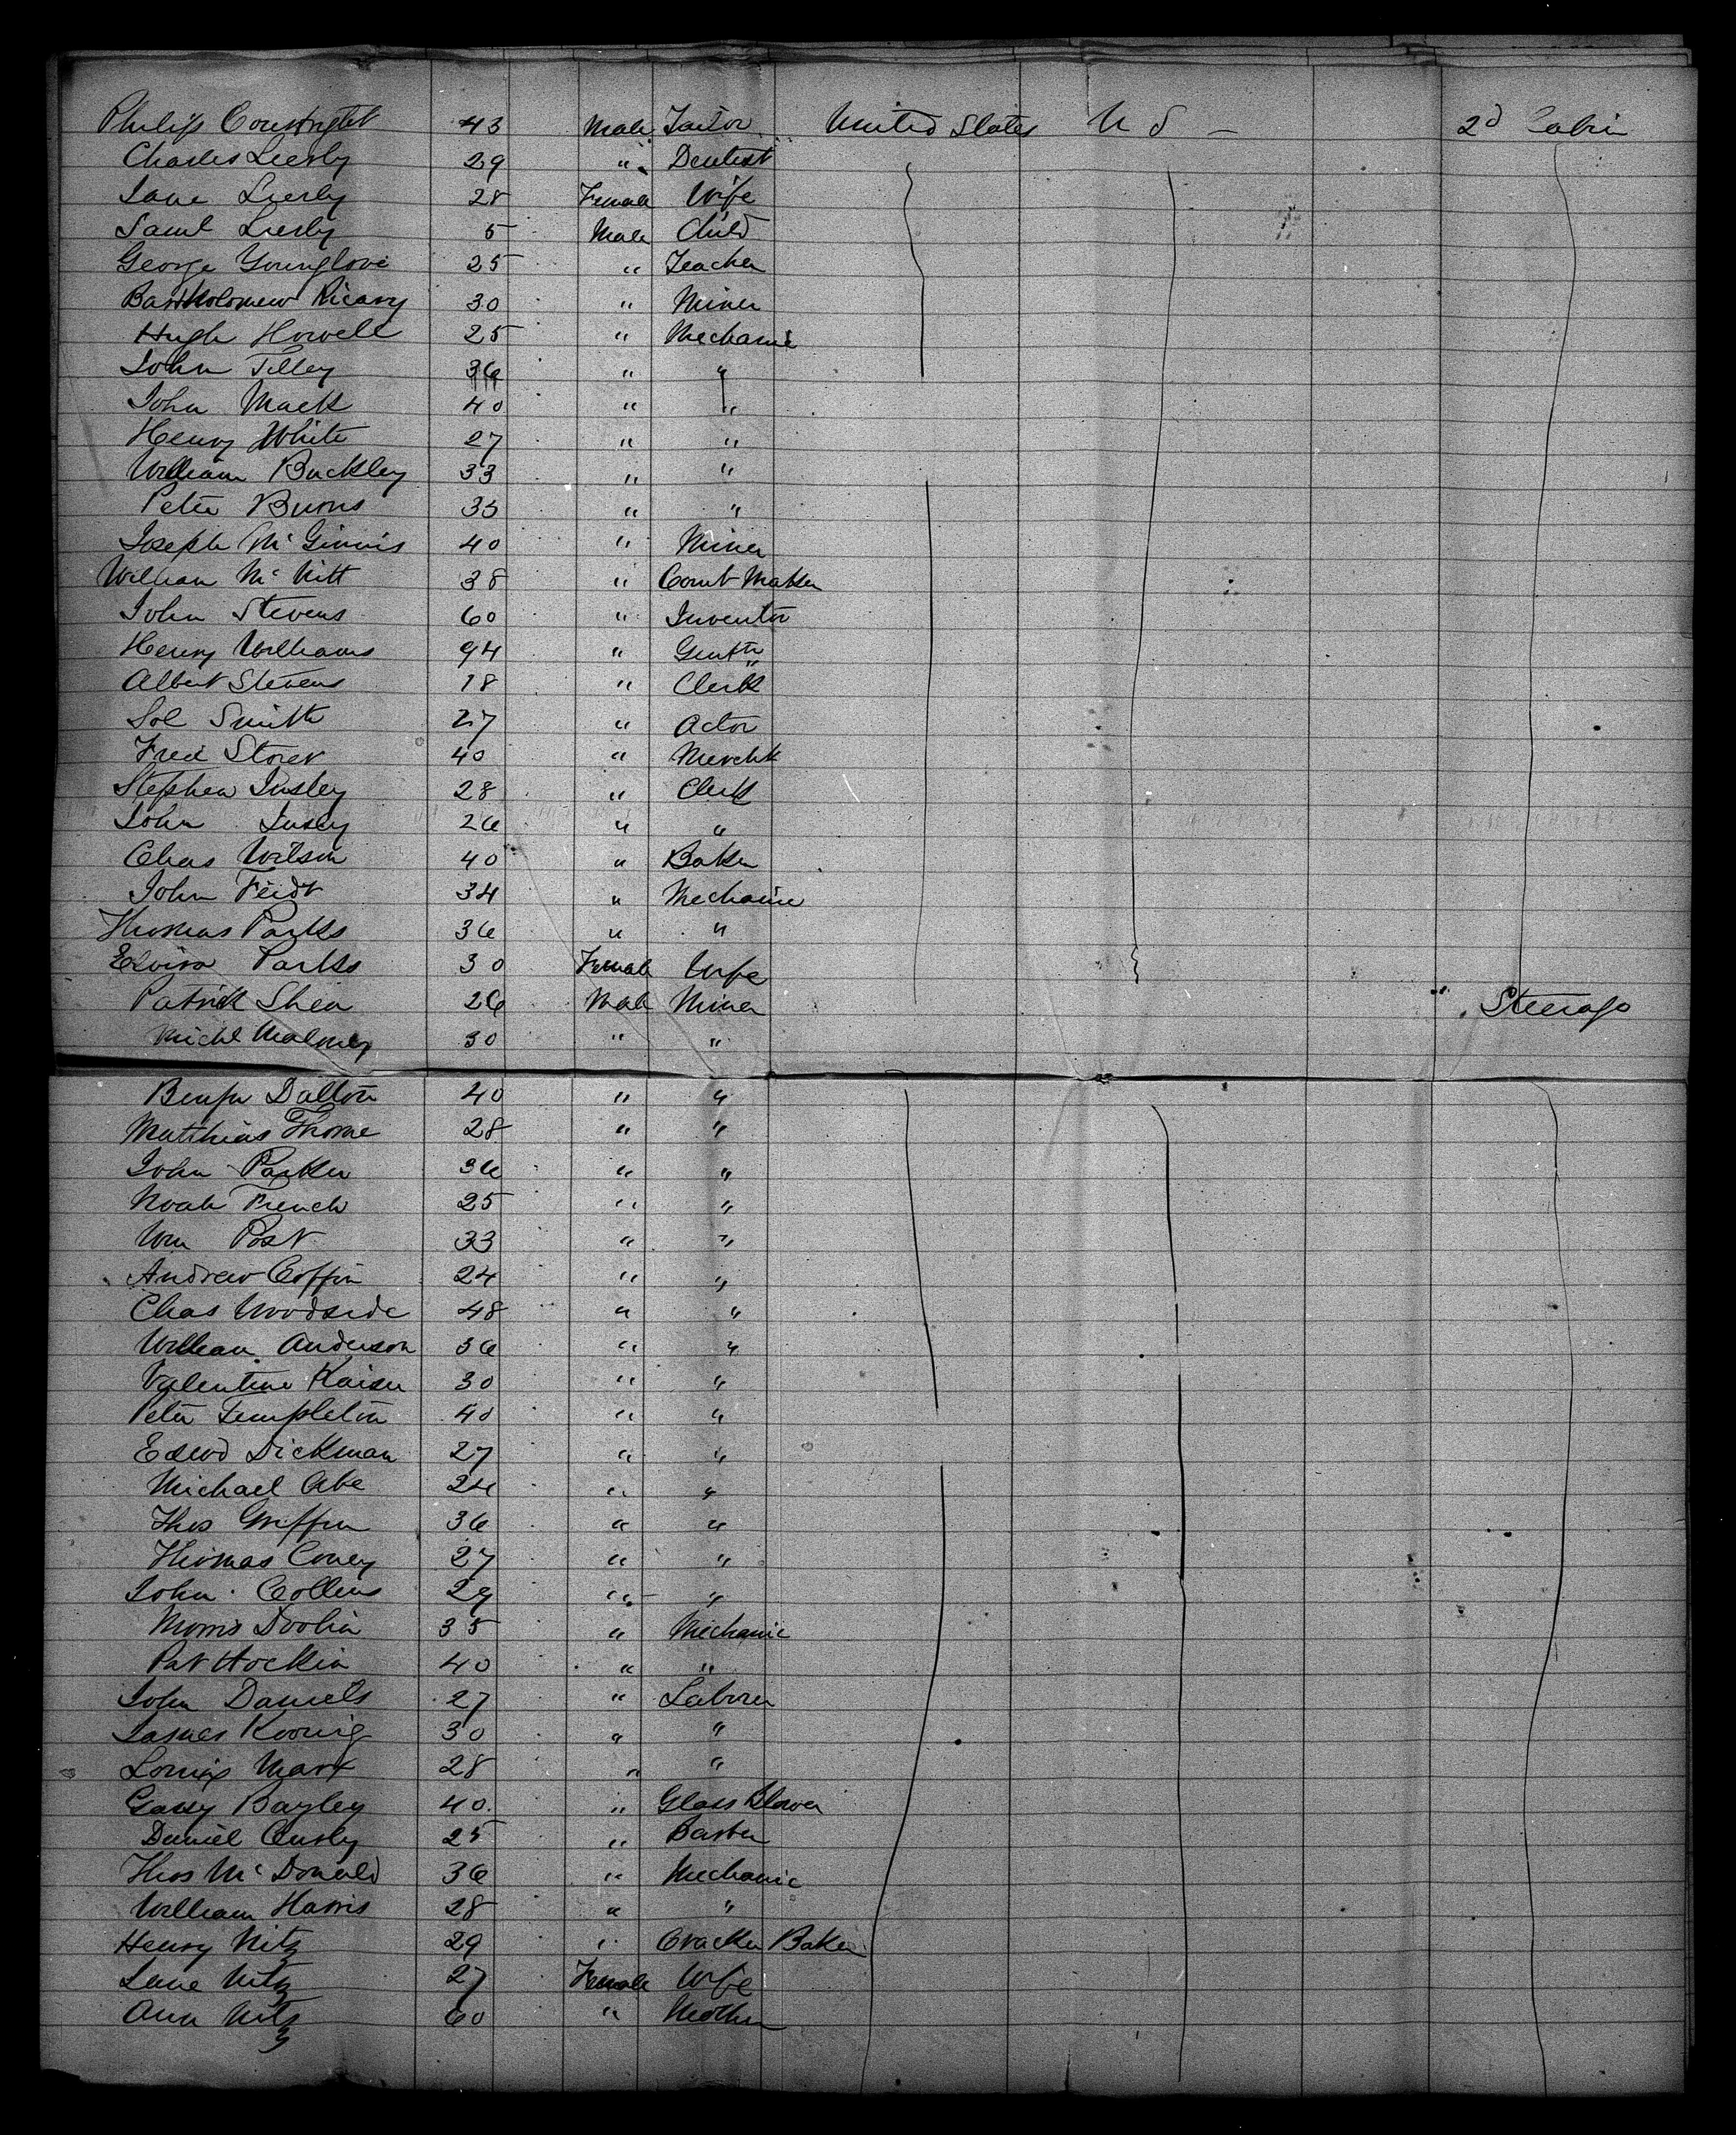 Philip 43 Male Tailor United States U S - 2d Cabin
Charles Lierly 29 " Dentist
Jane Lierly 28 Female Wife
Saml Lierly 5 Male Child
George Younglove 25 " Teacher
Bartholomew 30 " Miner
Hugh Howell 25 " Mechanic
John Tilley 36 " "
John Mack 40 " "
Henry White 27 " "
William Buckley 33 " "
Peter Burns 35 " "
Joseph McGinnis 40 " Miner
William McNitt 38 " Comb Maker
John Stevens 60 " Inventor
Henry Williams 94 "
Albert Stevens 18 " Clerk
Sol Smith 27 " Actor
Fred Storer 40 " Mercht
Stephen Insley 28 " Clerk
John Insley 26 " "
Chas Wilson 40 " Baker
John Feidt 34 " Mechanic
Thomas Parks 36 " "
Elvira Parks 30 Female Wife
Patrick Shea 26 Male Miner " Steerage
Michl Maloney 30 " "
Benjn Dalton 40 " "
Matthias Thorne 28 " "
John Parker 36 " "
Noah French 25 " "
Wm Post 33 " "
Andrew Coffin 24 " "
Chas Woodside 48 " "
William Anderson 36 " "
Valentine Kaiser 30 " "
Peter Templeton 40 " "
Edwd Dickman 27 " "
Michael Abe 24 " "
Thos Griffin 36 " "
Thomas Coney 27 " "
John Collins 29 " "
Morris Doolin 35 " Mechanic
Pat Hockin 40 " "
John Daniels 27 " Laborer
James Koonig 30 " "
Louis Marx 28 " "
Bayley 40 " Glass Blower
Daniel 25 " Barber
Thos McDonald 36 " Mechanic
William Harris 28 " "
Henry Nitz 29 " Cracker Baker
Jane Nitz 27 Female Wife
Ann Nitz 60 " Mother